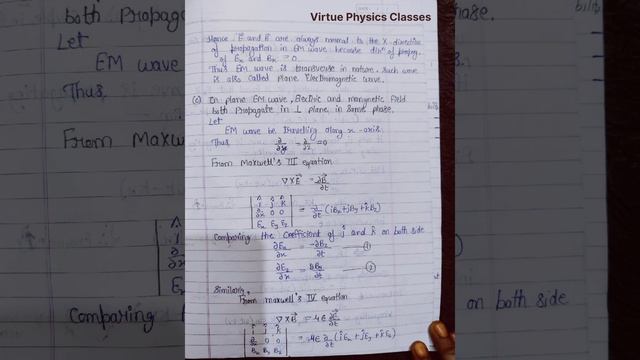 Virtue Physics Classes
Hence E⃗ and B⃗ are always normal to the X direction
of propagation in EM wave because dirⁿ of propag.
of Ex and Bx = 0
Thus EM wave is transverse in nature. Such wave
is also called plane Electromagnetic wave.
(c) In plane EM wave, Electric and mangnetic Field
both Propagate in ⊥ plane in same phase.
Let
EM wave be travelling along x-axis.
Thus ∂/∂y = ∂/∂z = 0
From Maxwell's III equation
∇×E⃗ = ∂B⃗/∂t
| î ĵ k̂ |
| ∂/∂x 0 0 | = ∂/∂t (îBx + ĵBy + k̂Bz)
| Ex Ey Ez |
Comparing the coefficient of ĵ and k̂ on both side
∂Ex/∂x = -∂Bz/∂t —— (1)
∂Ez/∂x = ∂By/∂t —— (2)
Similarly,
From maxwell's IV equation
∇×B⃗ = μϵ ∂E⃗/∂t
| î ĵ k̂ |
| ∂/∂x 0 0 | = μϵ ∂/∂t (îEx + ĵEy + k̂Ez)
| Bx By Bz |
both Propag
Let
EM wave
Thus
From Maxw
Comparing
phase.
on both side